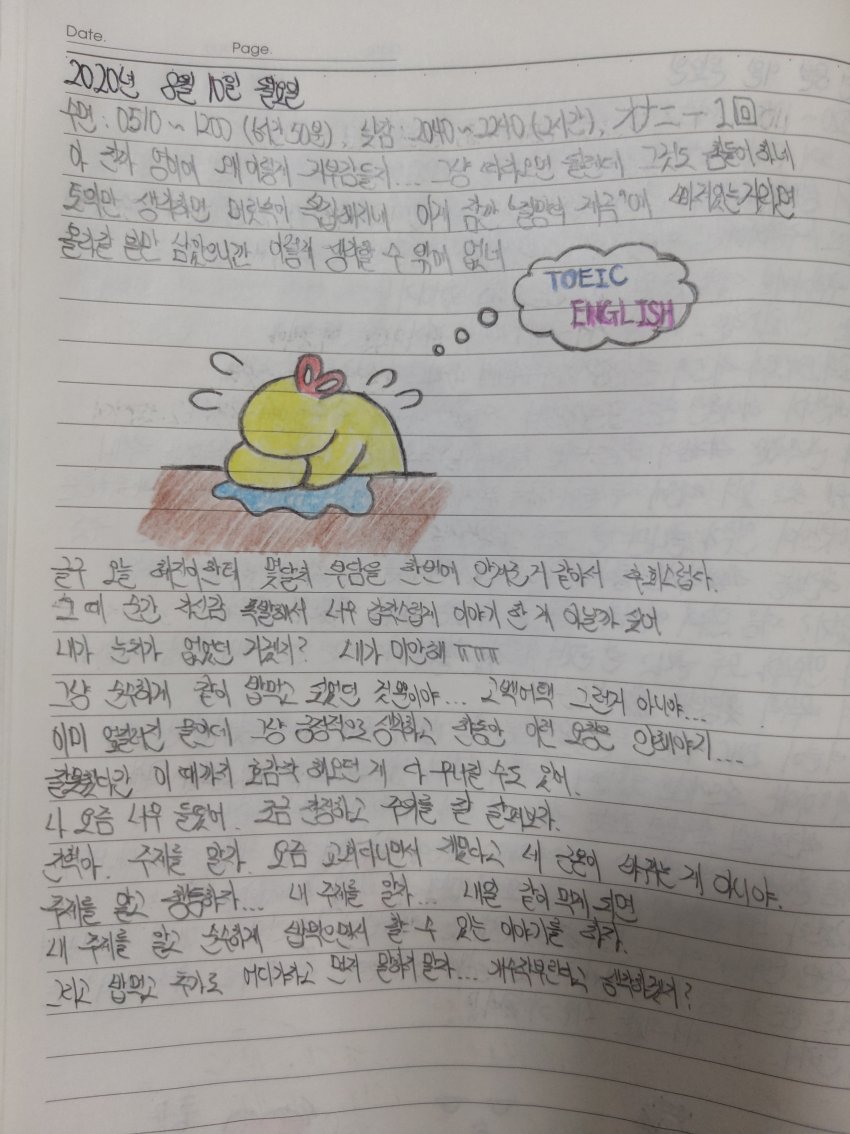 Date.
Page.
2020년 8월 10일 월요일
수면 : 0510 ~ 1200 (6시간 50분), 낮잠 : 2040 ~ 2240 (2시간), オナニー 1回
아 진짜 영어에 왜이렇게 거부감들지... 그냥 하면 될텐데 그것도 힘들어하네
토익만 생각하면 머릿속이 복잡해지네 이게 잠깐 "절망의 계곡"에 빠져있는거라면
올라갈 일만 남았으니깐 이렇게 생각할 수 밖에 없네
TOEIC
ENGLISH
글구 오늘 한테 몇달치 부담을 한번에 안겨준거 같아서 후회스럽다.
그 때 순간 자신감 폭발해서 너무 갑작스럽게 이야기 한 게 아닐까 싶어
내가 눈치가 없었던 거겠지? 내가 미안해 ㅠㅠㅠ
그냥 순수하게 같이 밥먹고 싶었던 것뿐이야... 고백어택 그런거 아니야...
이미 엎질러진 물인데 그냥 긍정적으로 생각하고 한동안 이런 요청은 안해야지....
잘못했다간 이 때까지 호감작 해오던 게 다 무너질 수도 있어.
나 요즘 너무 들떴어. 조금 진정하고 주위를 잘 살펴보자.
주제를 알자. 요즘 교회다니면서 깨달았다고 네 근본이 바뀌는 게 아니야.
주제를 알고 행동하자... 내 주제를 알자... 내일 같이 먹게 되면
내 주제를 알고 순수하게 밥먹으면서 할 수 있는 이야기를 하자.
그리고 밥먹고 추가로 어디가자고 먼저 말하지 말자... 개수작부린다고 생각하겠지?